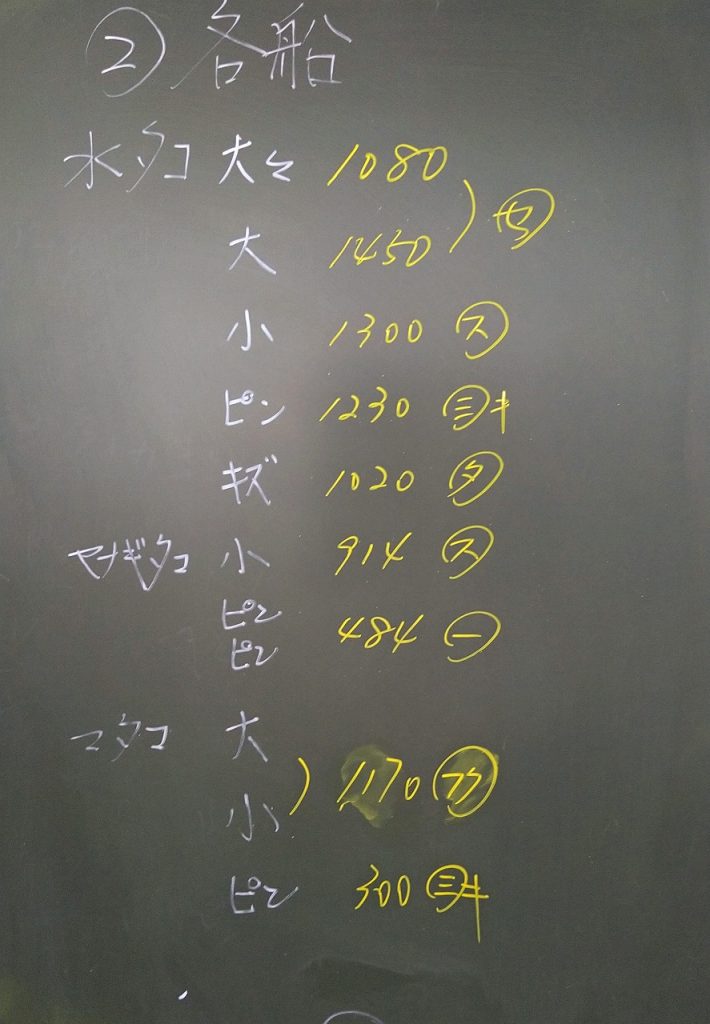 ② 各船
水タコ 大々 1080
大 1450
小 1300 ㋜
ピン 1230 ㊂キ
キズ 1020 ㋟
ヤナギタコ 小 914 ㋜
ピンピン 484 ㊀
マタコ 大
小 1170
ピン 300 ㊂キ